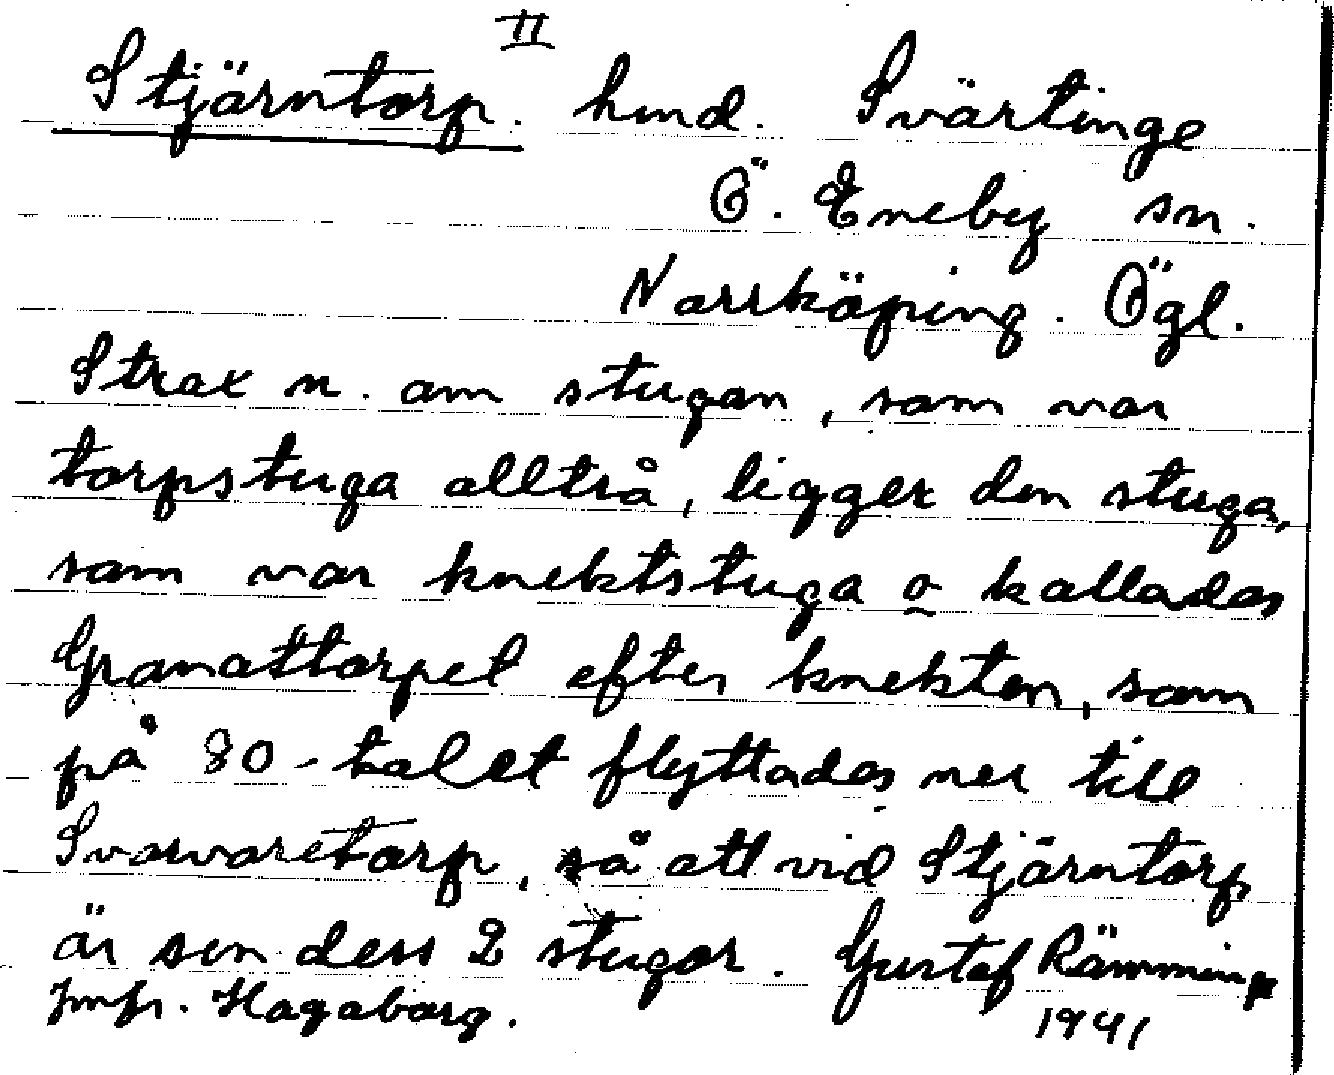 II
Stjärntorp. hmd. Svärtinge
Ö. Eneby sn.
Norrköping. Ögl.
Strax n. om stugan, som var
torpstuga alltså, ligger den stuga,
som var knektstuga o kallades
Granattorpet efter knekten, som
på 80-talet flyttades ner till
Svarvaretorp, så att vid Stjärntorp
är sen dess 2 stugor. Gustaf Rämminge
Jmfr. Hagaborg. 1941